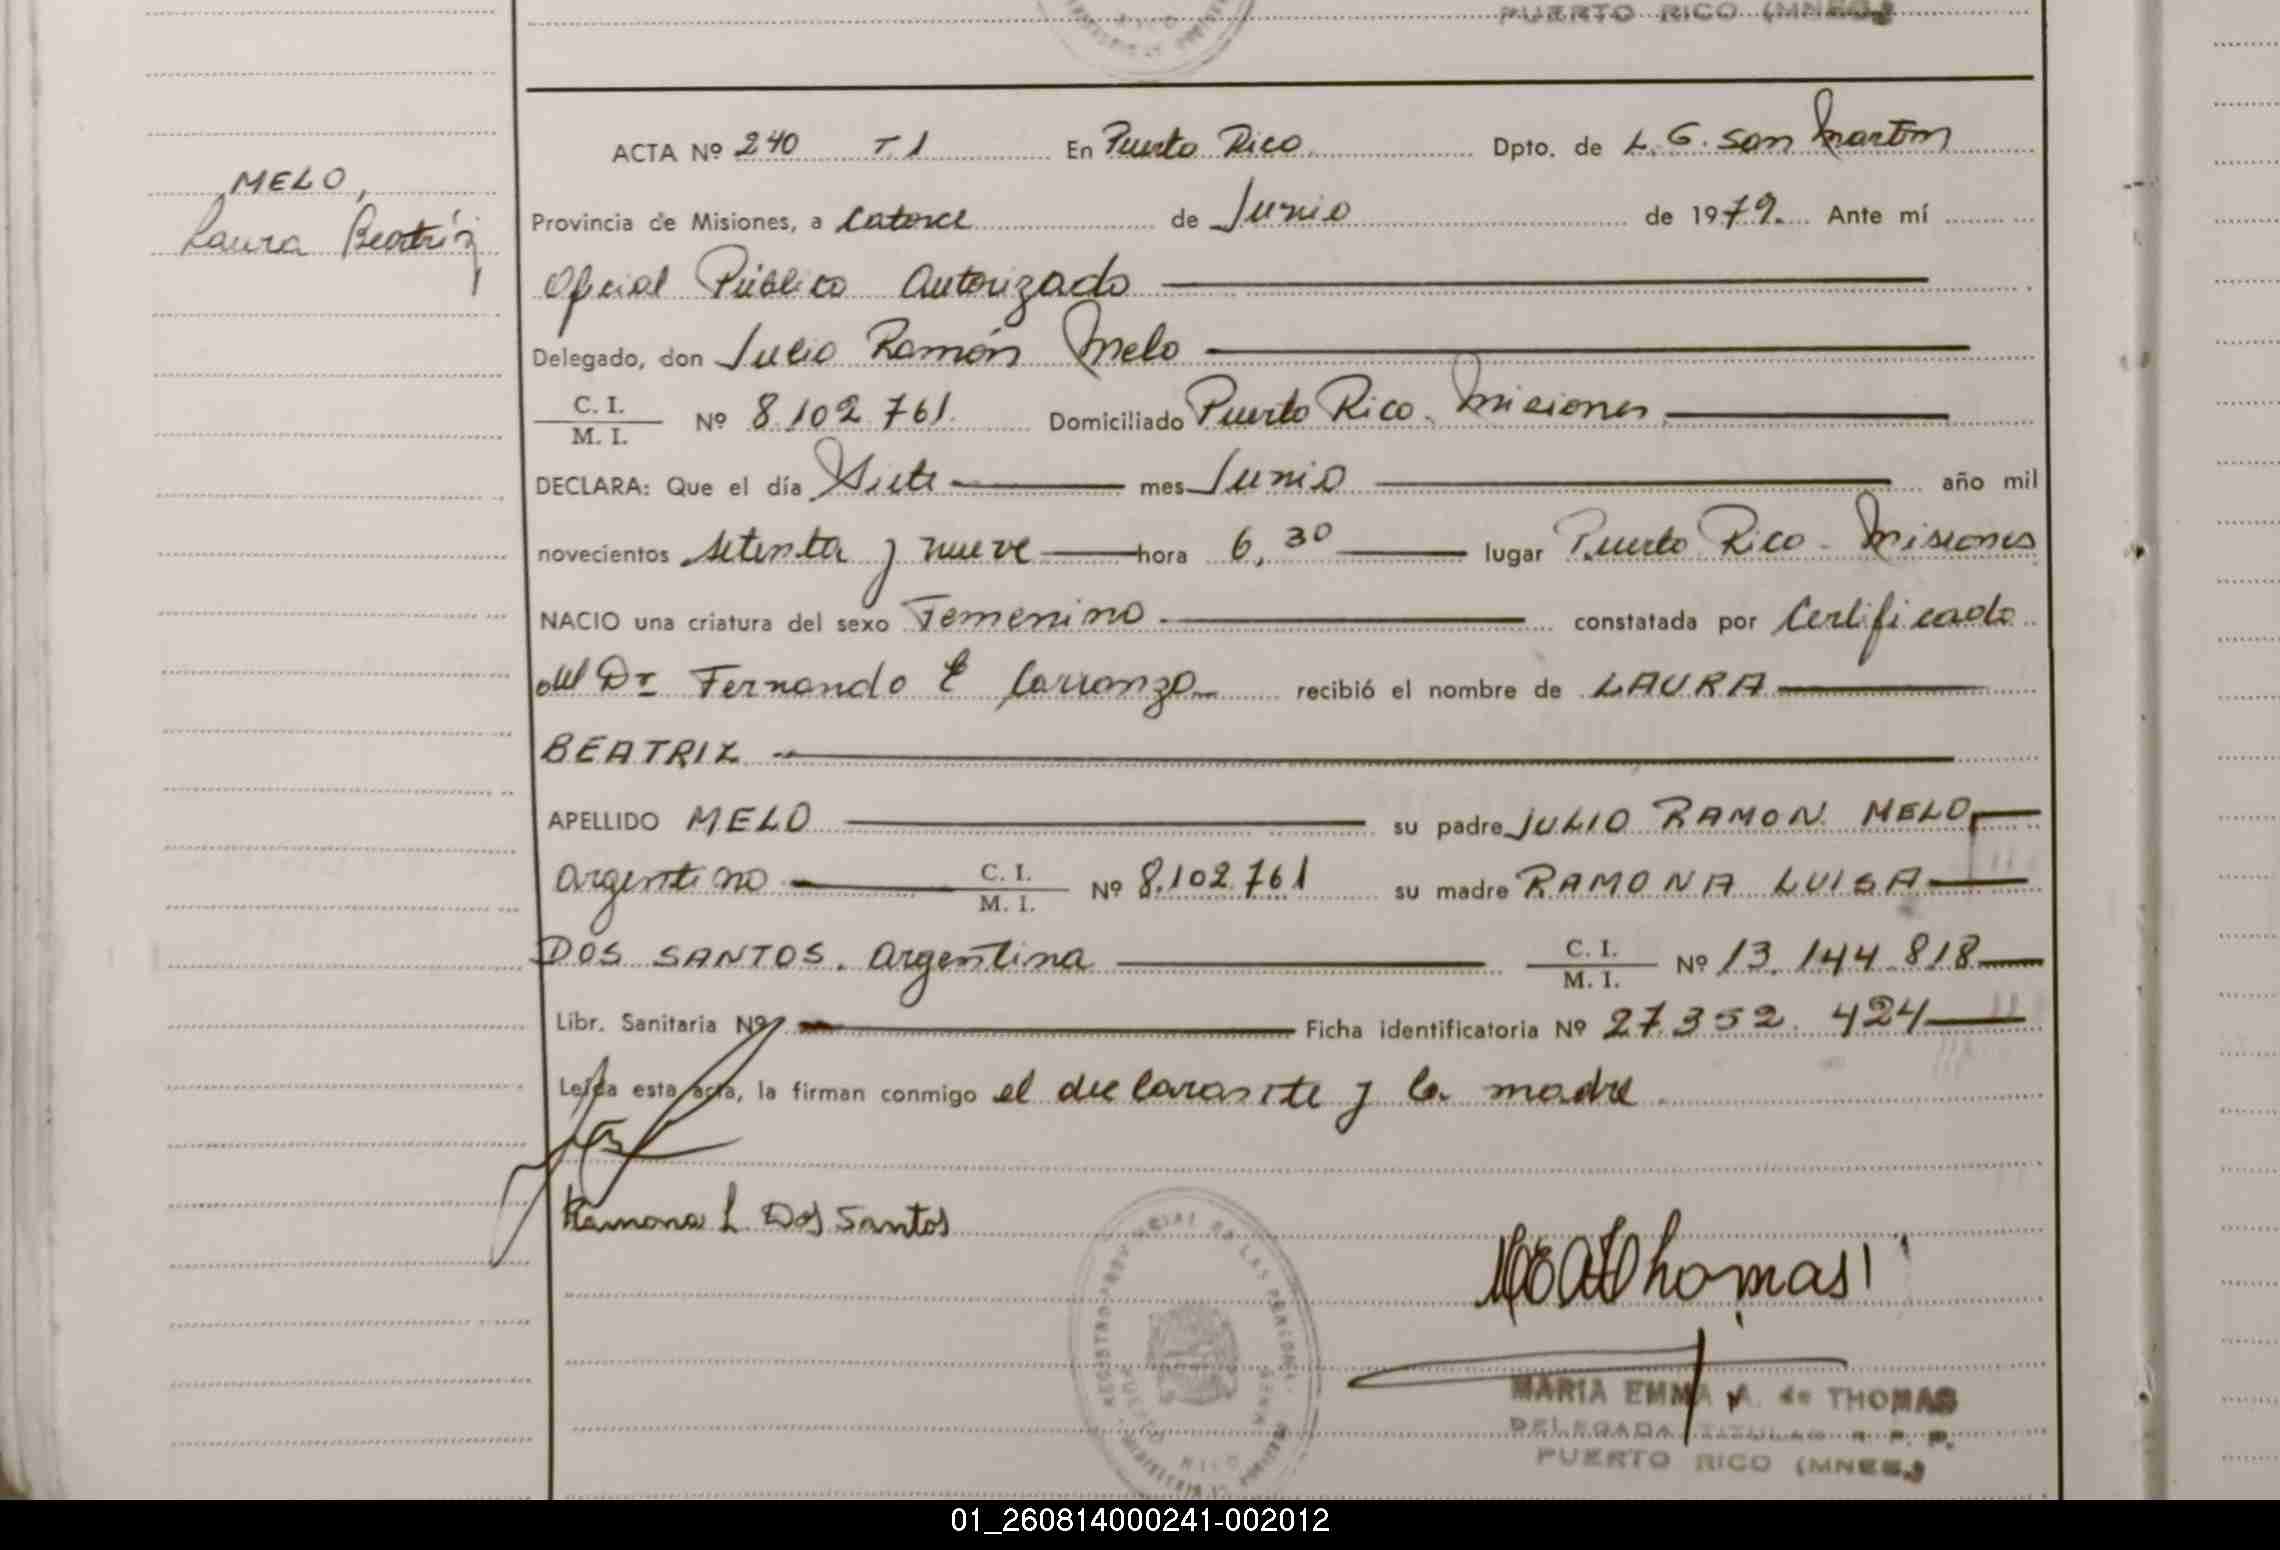 PUERTO RICO (MNES.)
ACTA Nº 240 T 1 En Puerto Rico Dpto. de L. G. San Martin
MELO,
Laura Beatriz
Provincia de Misiones, a Catorce de Junio de 1979. Ante mí
Oficial Público Autorizado
Delegado, don Julio Ramón Melo
C. I.
M. I. Nº 8.102.761. Domiciliado Puerto Rico. Misiones
DECLARA: Que el día Siete mes Junio año mil
novecientos setenta y nueve hora 6,30 lugar Puerto Rico - Misiones
NACIO una criatura del sexo Femenino constatada por Certificado
del Dr Fernando E Carranza recibió el nombre de LAURA
BEATRIZ
APELLIDO MELO su padre JULIO RAMON MELO,
Argentino C. I.
M. I. Nº 8.102.761 su madre RAMONA LUISA
DOS SANTOS. Argentina C. I.
M. I. Nº 13.144.818
Libr. Sanitaria Nº Ficha identificatoria Nº 27.352.424
Leída esta acta, la firman conmigo el declarante y la madre.
Ramona L. Dos Santos
MEAThomas
MARIA EMMA A. de THOMAS
DELEGADA TITULAR R. P. P.
PUERTO RICO (MNES.)
REGISTRO PROVINCIAL DE LAS PERSONAS
PUERTO RICO
01_260814000241-002012